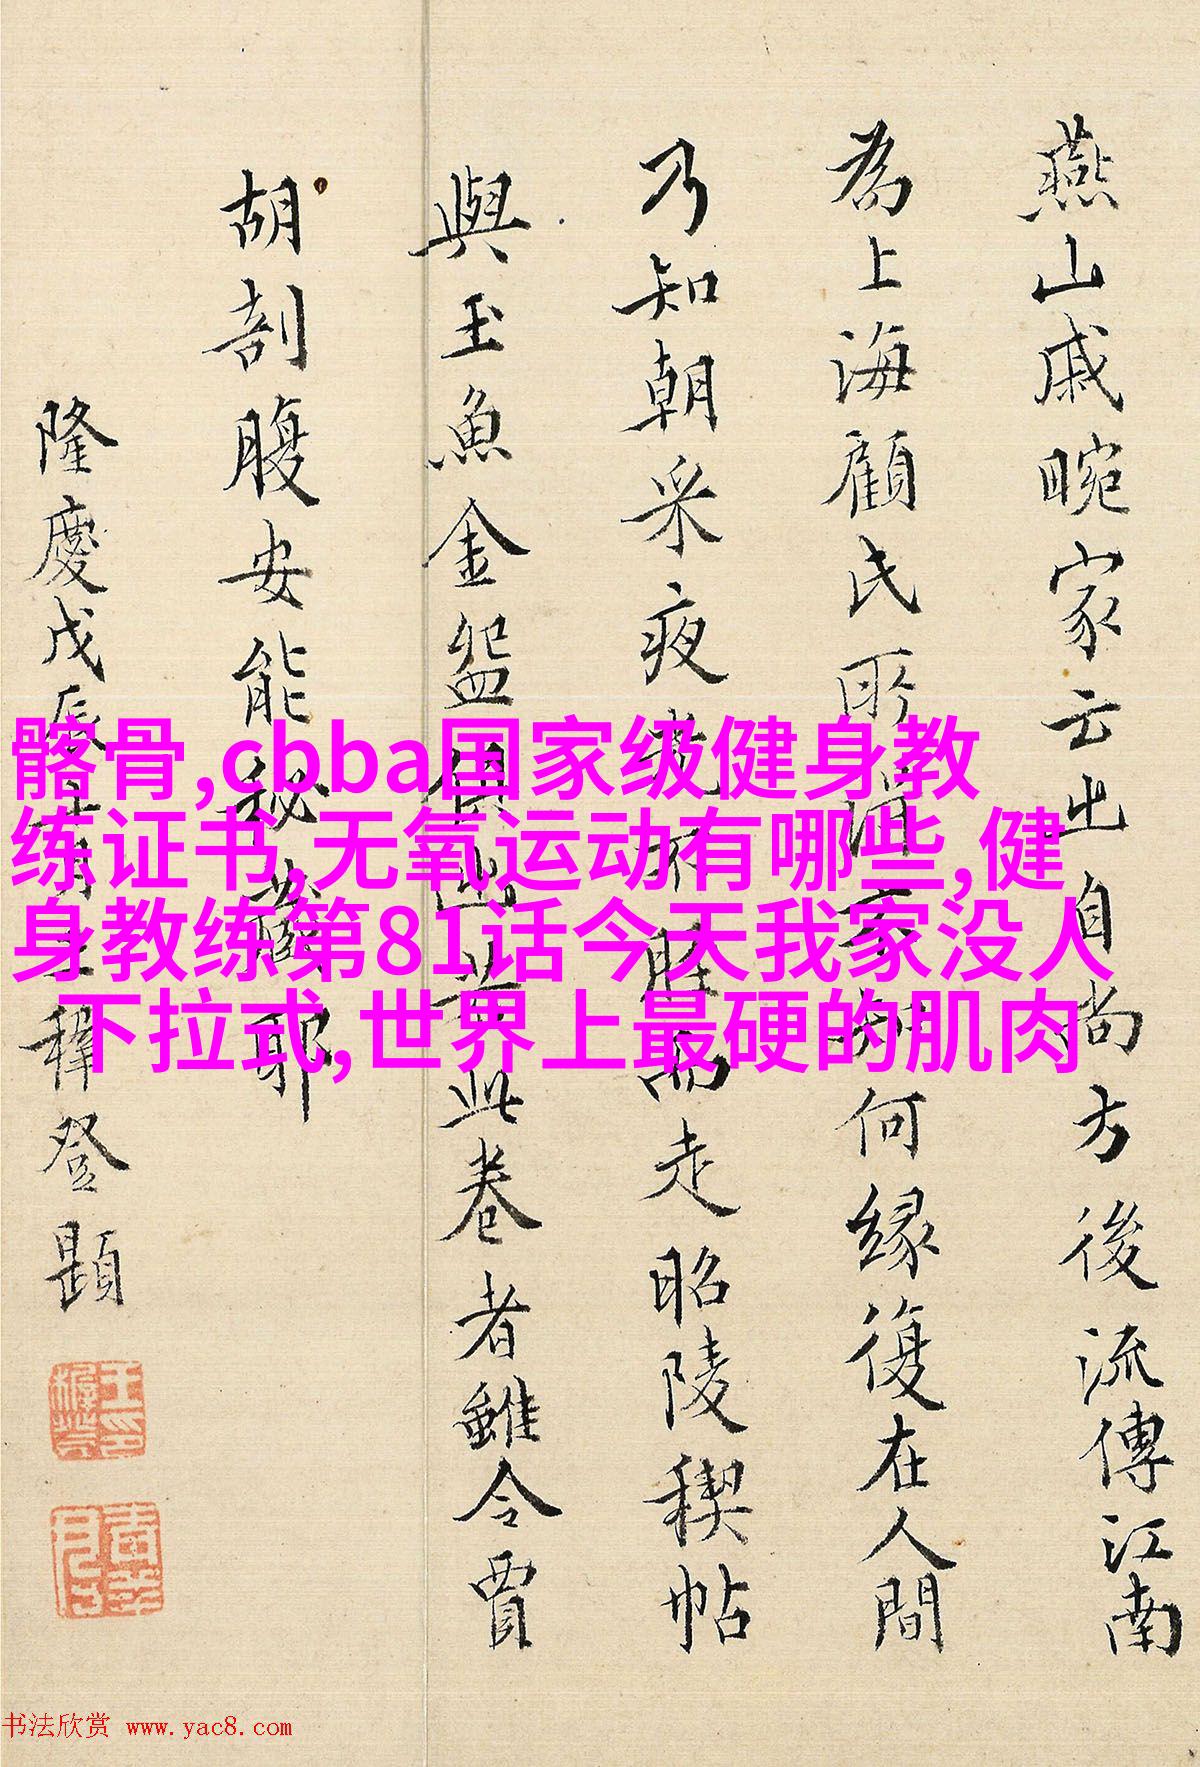 燕山戚畹家云出自尚方後流傳江南
為上海顧氏所得不知何緣復在人間
乃知朝采夜光不脛而走昭陵稧帖
與玉魚金盌俱出若此卷者雖令賈
胡剖腹安能秘藏耶
隆慶戊辰七月王穉登題
髂骨,cbba国家级健身教
练证书,无氧运动有哪些,健
身教练第81话今天我家没人
下拉式,世界上最硬的肌肉
书法欣赏 www.yac8.com